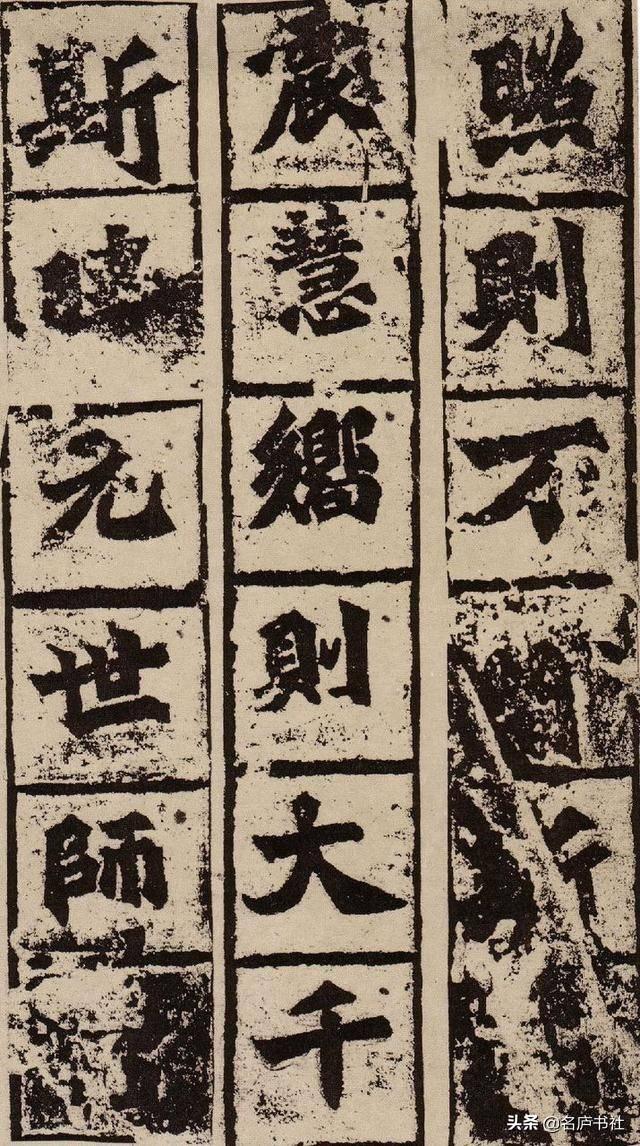 照則不
震慧嚮則大千
斯元世師
头条 @名庐书社